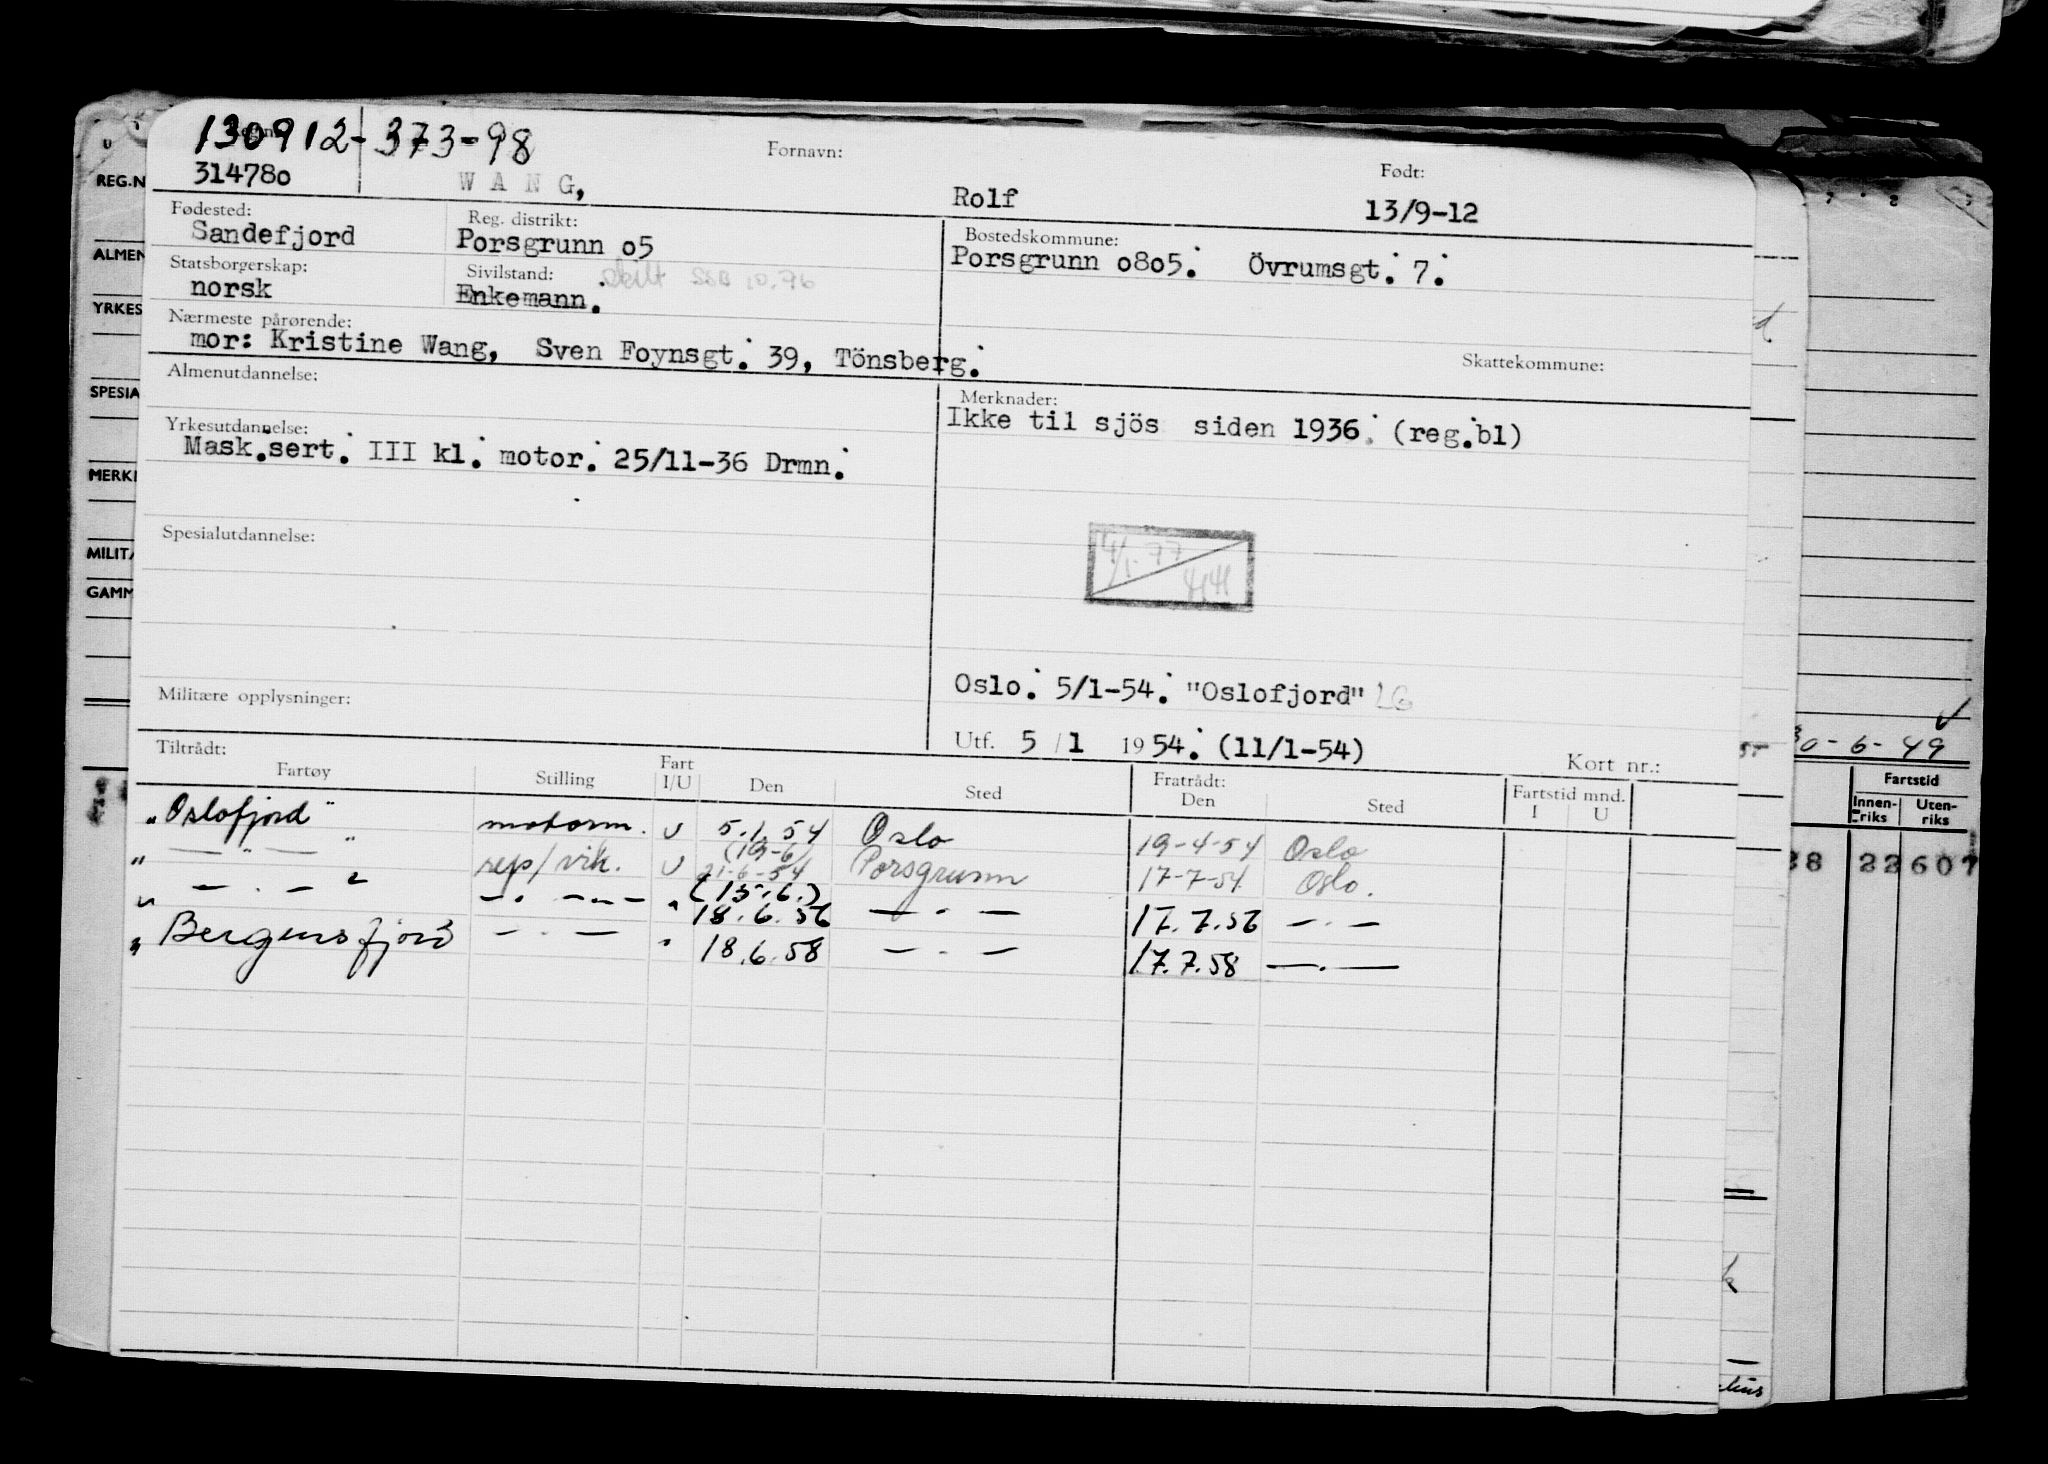 130912-373-98
314780
WANG,
Fornavn:
Rolf
Født:
13/9-12
Fødested:
Sandefjord
Reg. distrikt:
Porsgrunn o5
Bostedskommune:
Porsgrunn o8o5. Övrumsgt. 7.
Statsborgerskap:
norsk
Sivilstand:
Enkemann. skilt SSB 10.76
Nærmeste pårørende:
mor: Kristine Wang, Sven Foynsgt. 39, Tönsberg.
Skattekommune:
Almenutdannelse:
Merknader:
Ikke til sjös siden 1936. (reg.bl)
Yrkesutdannelse:
Mask.sert. III kl. motor. 25/11-36 Drmn.
Spesialutdannelse:
4/1-77
Oslo. 5/1-54. "Oslofjord" LG
Militære opplysninger:
Utf. 5/1 1954. (11/1-54)
Kort nr.:
Tiltrådt:
Fratrådt:
Fartøy Stilling Fart I/U Den Sted Den Sted Fartstid mnd. I U
"Oslofjord" motorm. U 5.1.54 Oslo 19-4-54 Oslo
" — " — " rep/vik. U (19-6) 21-6-54 Porsgrunn 17-7-54 Oslo.
" — . — " — . — . . — " (15.6.) 18.6.56 — . — 17.7.56 — . —
" Bergensfjord — . — " 18.6.58 — . — 17.7.58 — . —
REG.N
ALMEN
YRKES
SPESIA
MERK
MILIT
GAMM
30-6-49
Fartstid
Innenriks
Utenriks
38 22 607